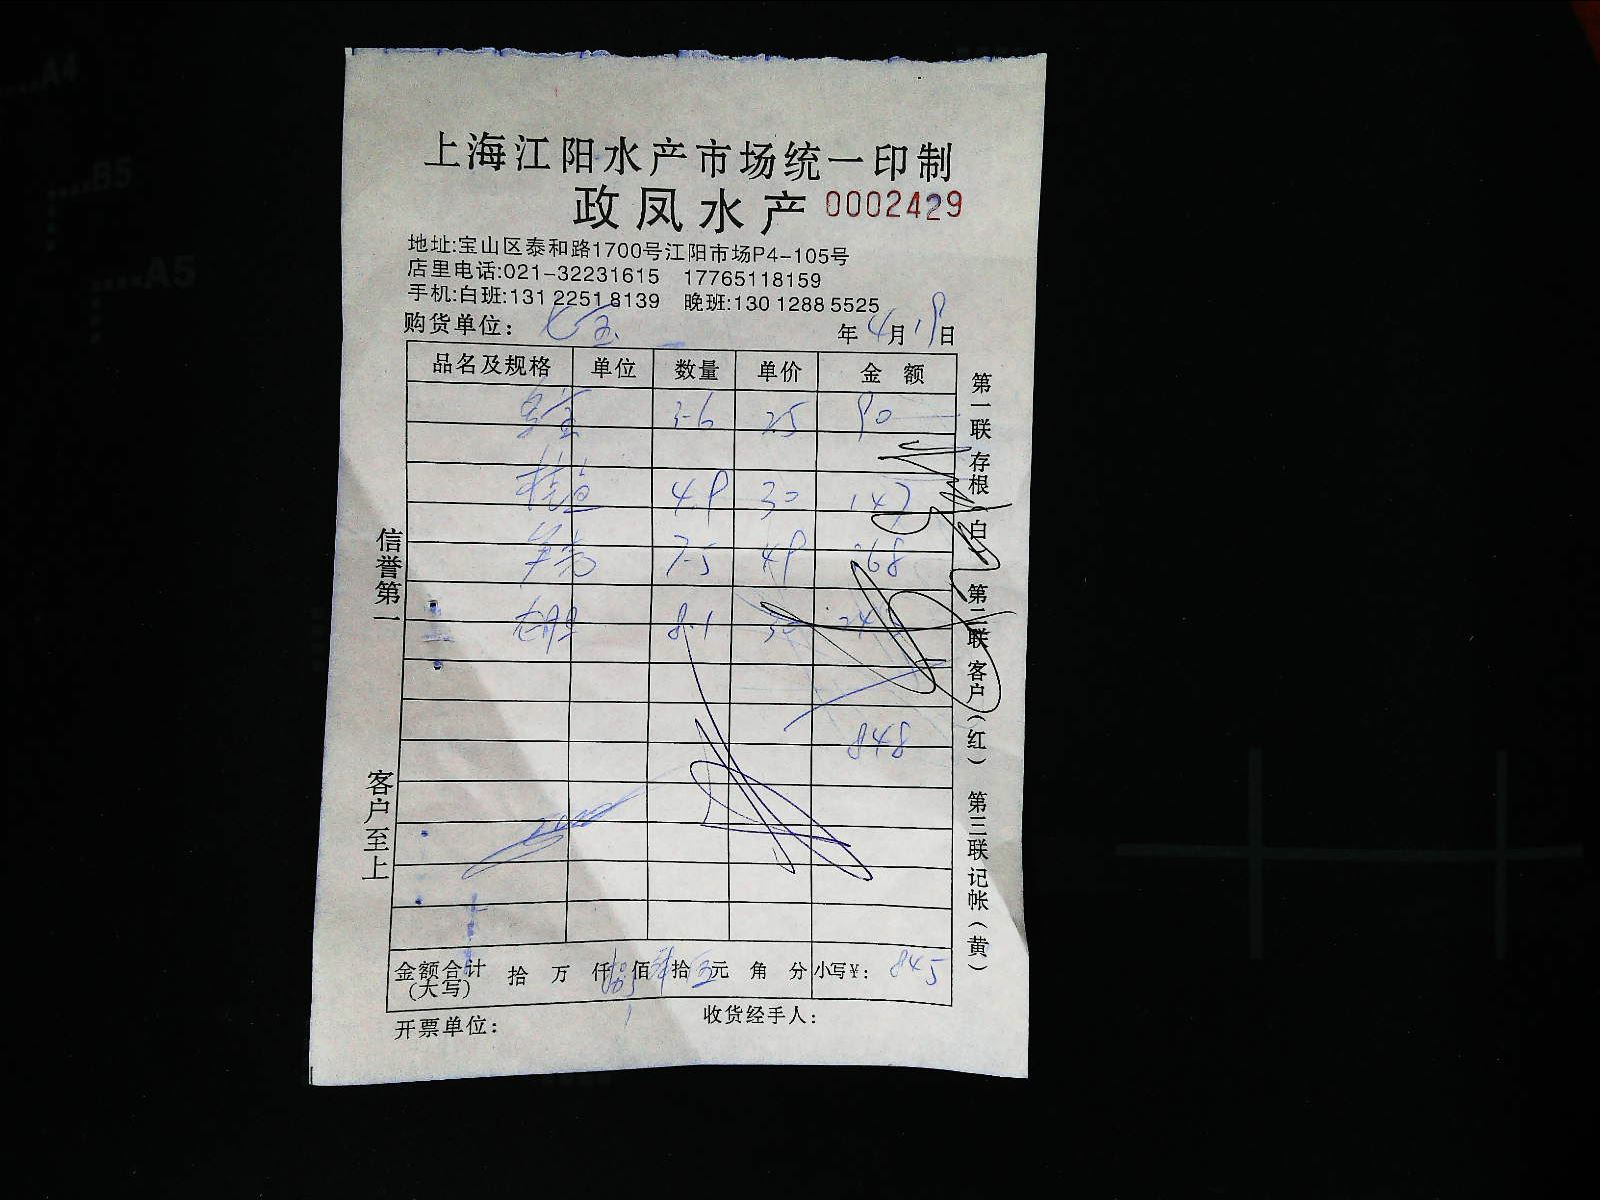 A4
B5
A5
上海江阳水产市场统一印制
政凤水产 0002429
地址:宝山区泰和路1700号江阳市场P4-105号
店里电话:021-32231615 17765118159
手机:白班:131 2251 8139 晚班:130 1288 5525
购货单位: 七宝 年 4 月 19 日
品名及规格 单位 数量 单价 金额
3-6 25 90
桂鱼 4.9 30 147
7-5 49 368
8.1 30
848
金额合计(大写) 拾 万 仟 捌 佰 肆 拾 五 元 角 分 小写¥: 845
开票单位: 收货经手人:
信誉第一 客户至上
第一联 存根(白) 第二联 客户(红) 第三联 记帐(黄)